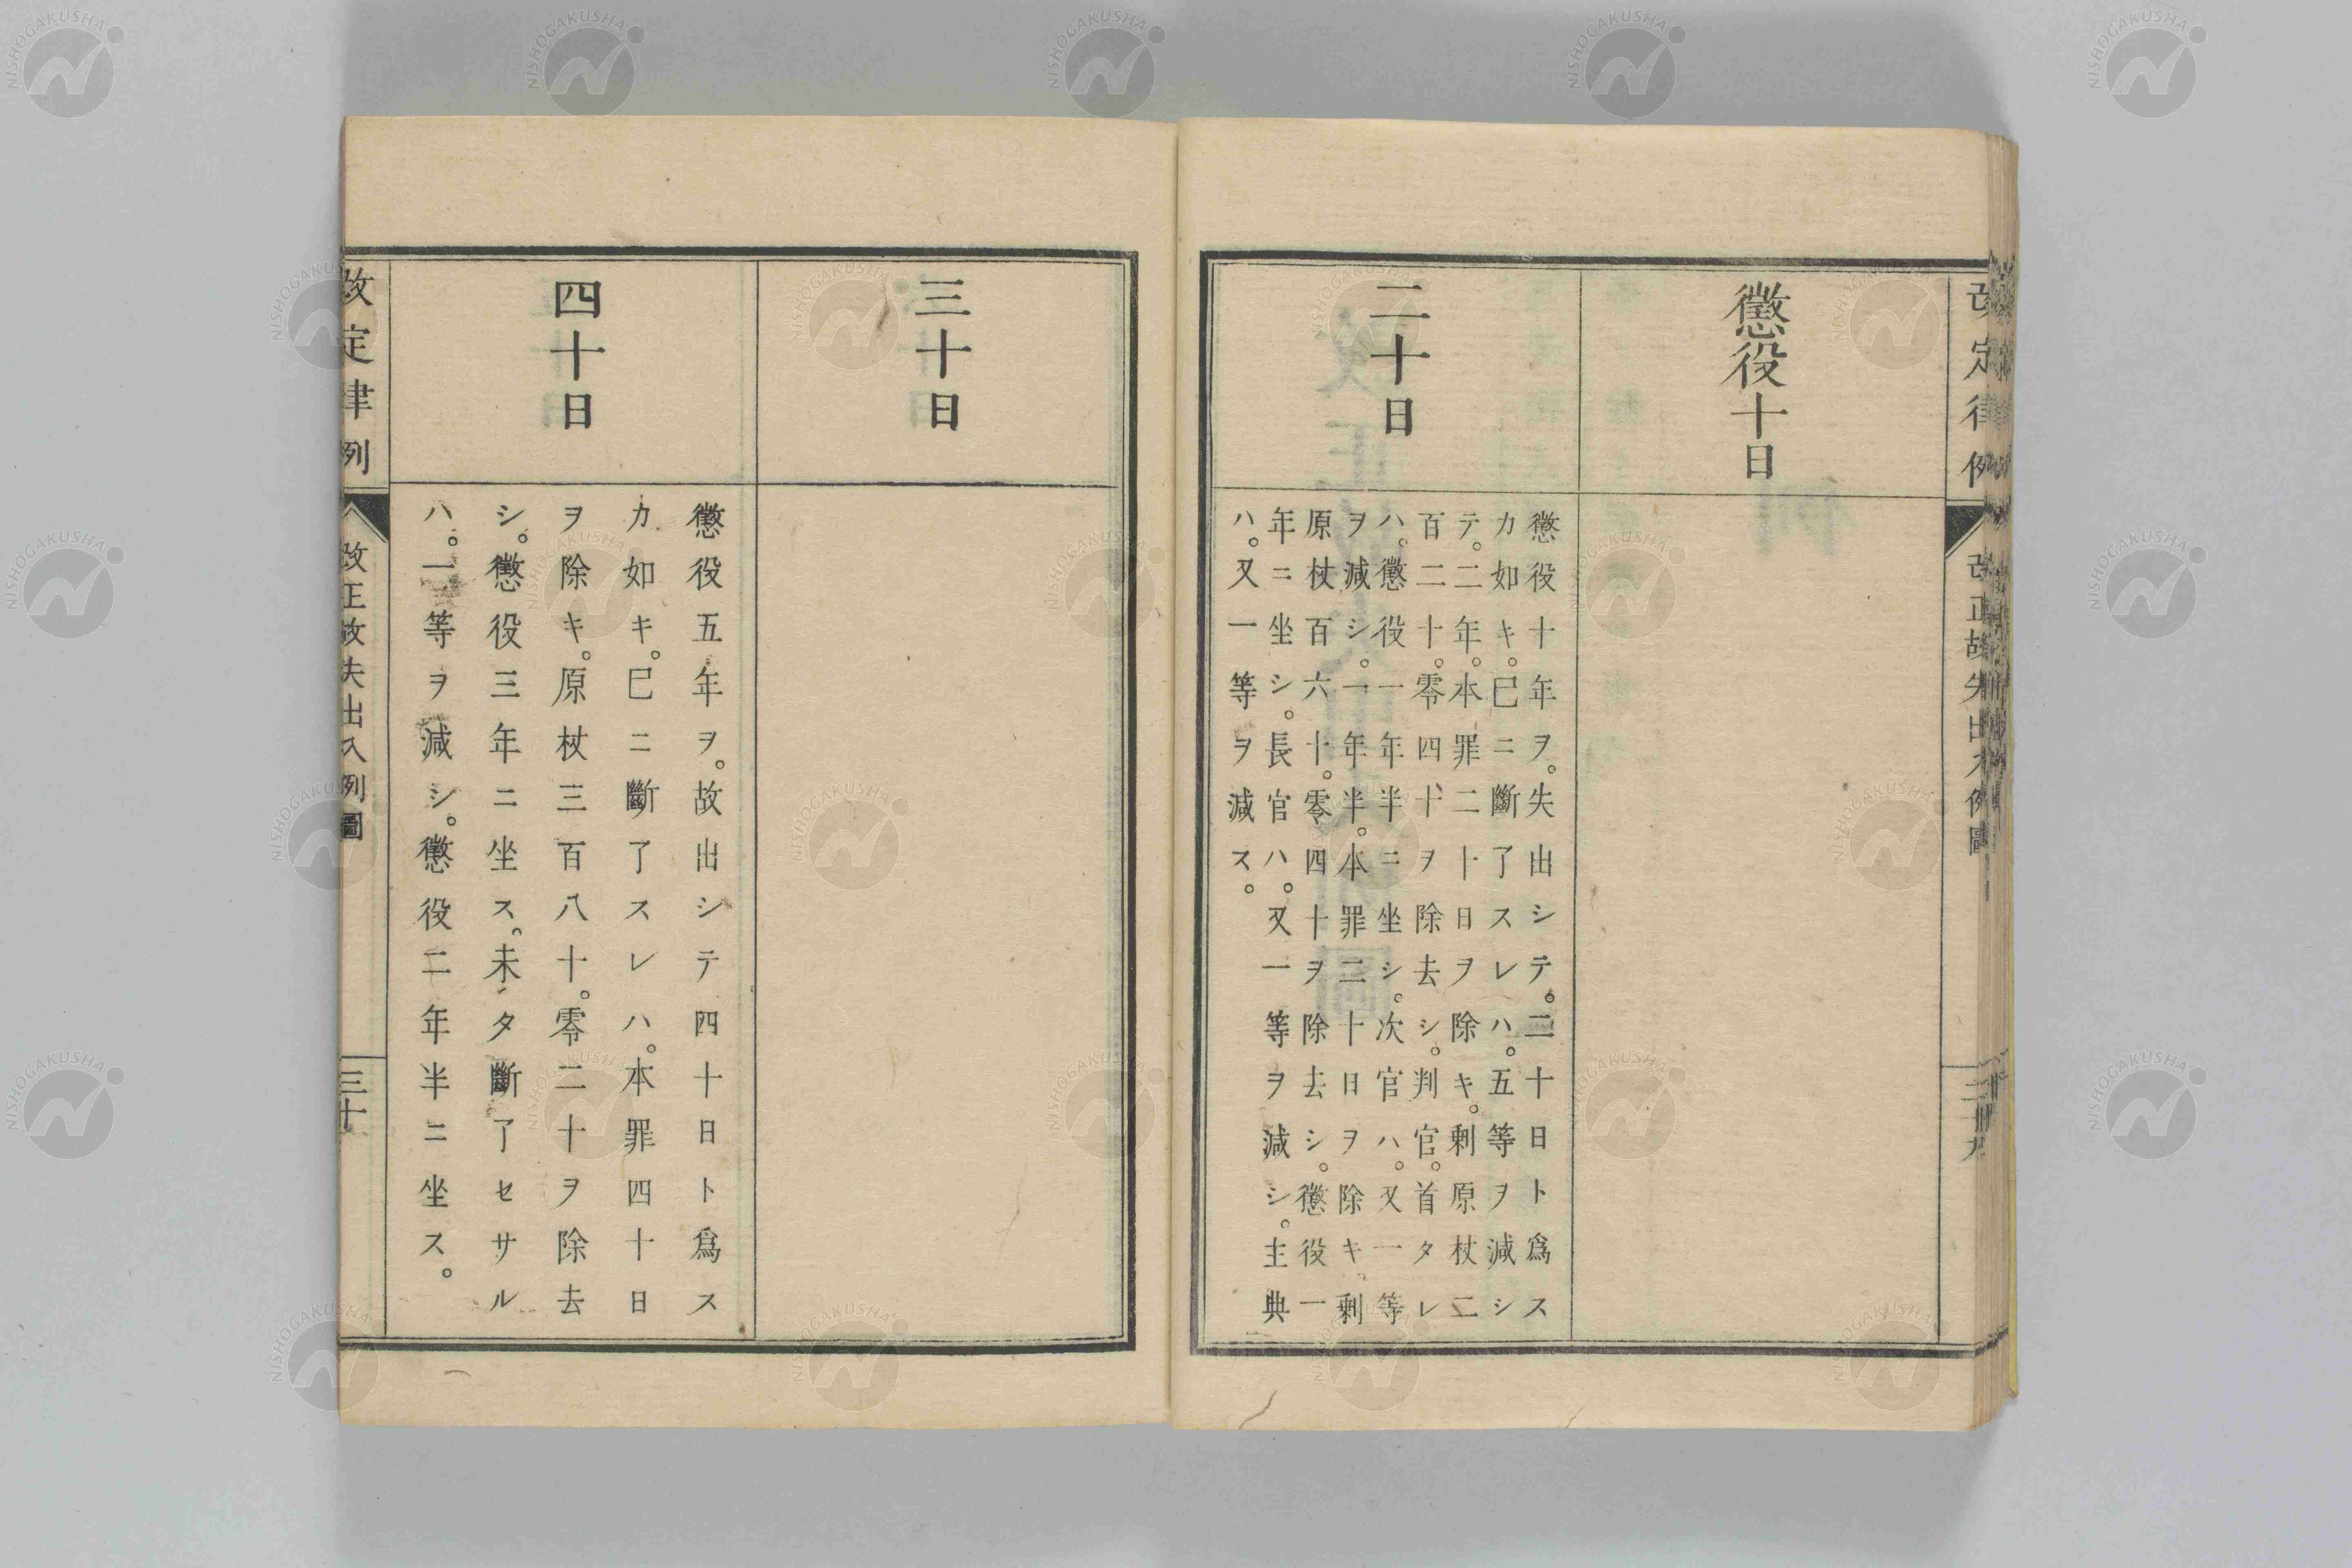 改定律例
改正故失出入例圖
二十九
懲役十日
二十日
懲役十年ヲ。失出シテ。二十日ト爲ス
カ如キ。已ニ斷了スレハ。五等ヲ減シ
テ。二年。本罪二十日ヲ除キ。剰原杖二
百二十。零四十ヲ除去シ。判官。首タレ
ハ。懲役一年半ニ坐シ。次官ハ。又一等
ヲ減シ。一年半。本罪二十日ヲ除キ。剰
原杖百六十。零四十ヲ除去シ。懲役一
年ニ坐シ。長官ハ。又一等ヲ減シ。主典
ハ。又一等ヲ減ス。
三十日
四十日
懲役五年ヲ。故出シテ四十日ト爲ス
カ如キ。已ニ斷了スレハ。本罪四十日
ヲ除キ。原杖三百八十。零二十ヲ除去
シ。懲役三年ニ坐ス。未タ斷了セサル
ハ。一等ヲ減シ。懲役二年半ニ坐ス。
改定律例
改正故失出入例圖
三十
NISHOGAKUSHA